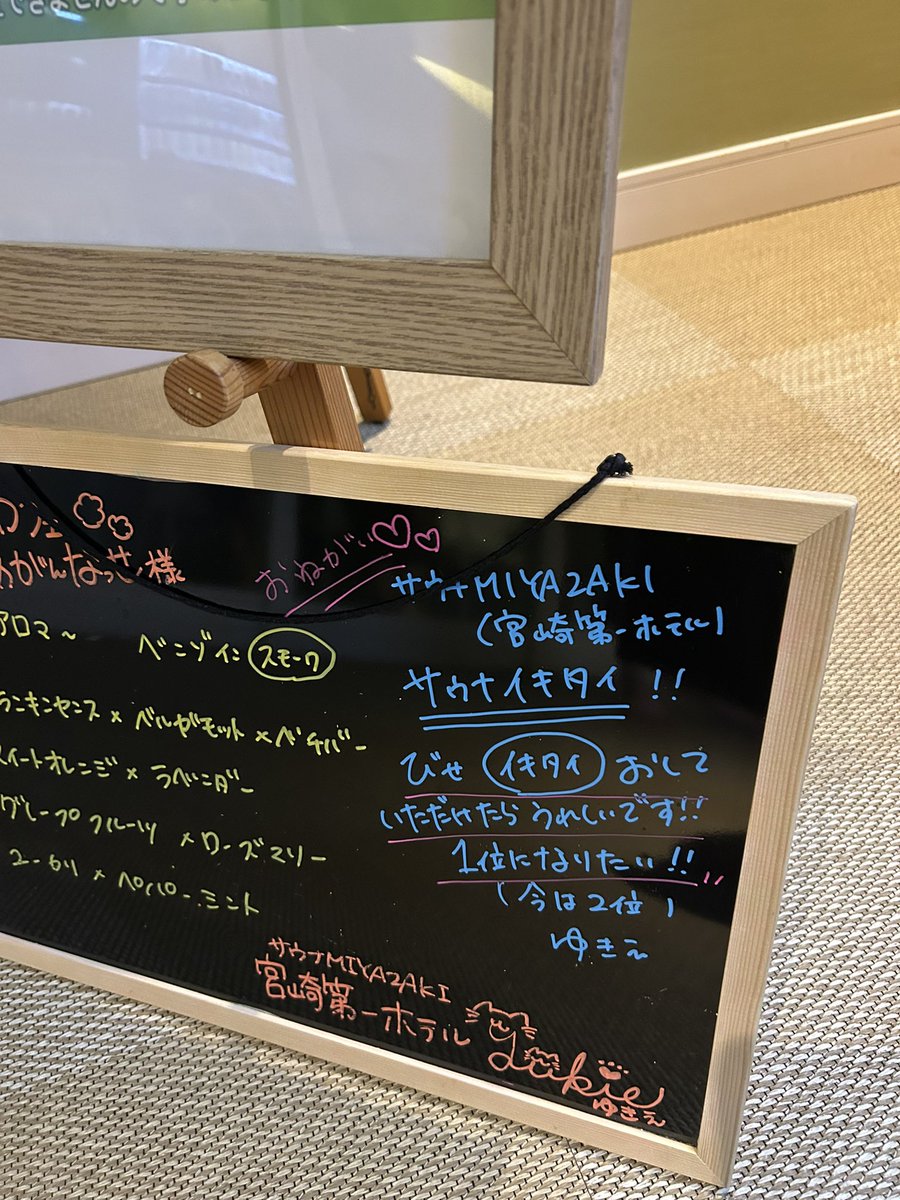 カフェ
わがんなっせ様
アロマ〜
ベンゾイン スモーク
ランキンセンス × ベルガモット × ベチバー
スイートオレンジ × ラベンダー
グレープフルーツ × ローズマリー
ユーカリ × ペパーミント
おねがい♡♡
サウナMIYAZAKI
(宮崎第一ホテル)
サウナイキタイ!!
ぴせ イキタイ おして
いただけたらうれしいです!!
1位になりたい!!
(今は2位)
ゆきえ
サウナMIYAZAKI
宮崎第一ホテル
Yukie
ゆきえ